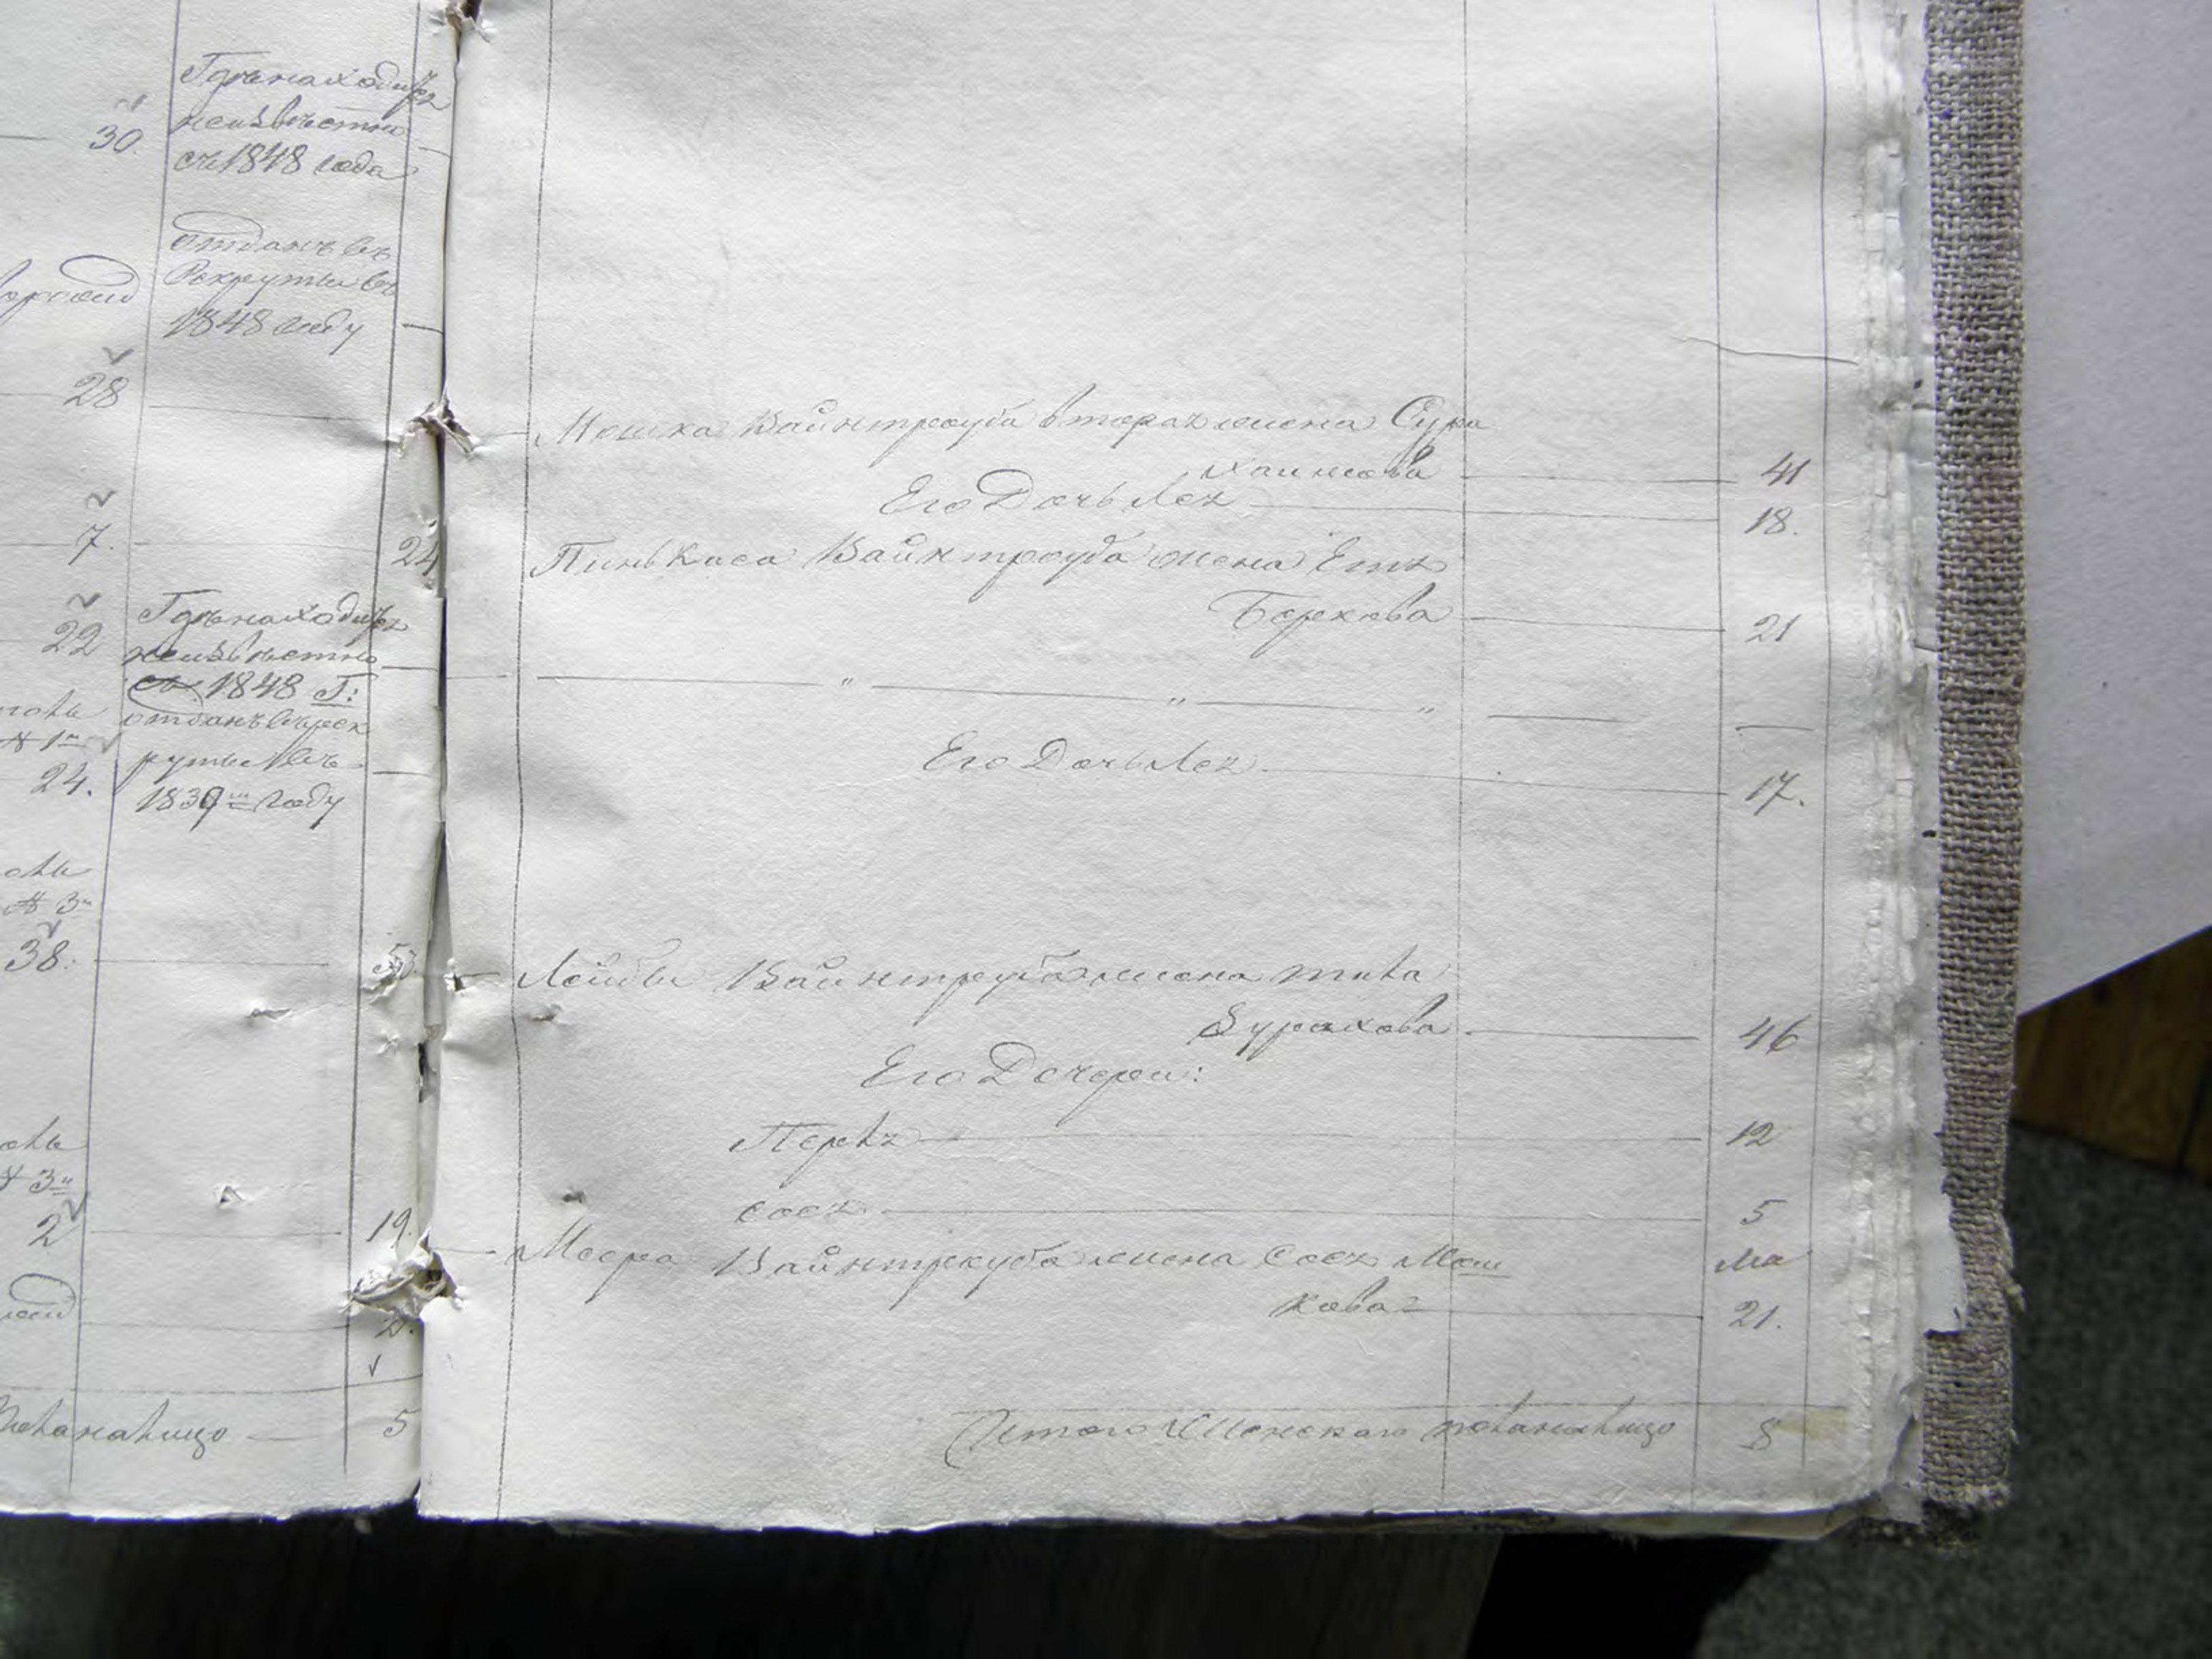 30.
Гдѣ находится
неизвѣстно
съ 1848 года
Отданъ въ
Рекруты въ
1848 году
28
7.
24
22
Гдѣ находится
неизвѣстно
1848 Г:
отданъ въ рек
руты въ
1839 году
24.
№ 3
38.
№ 3
2
19.
5
Мошка Вайнтрауба вторая жена Сура
Хаимова 41
Его Дочь Лея 18.
Пинькаса Вайнтрауба жена Етя
Беркова 21
" " "
Его Дочь Лея 17.
Лейбы Вайнтрауба жена
46
Его Дочери:
Перля 12
Сося 5
Меера Вайнтрауба жена Сося Мош
кова 21.
Итого Женскаго на лицо 8